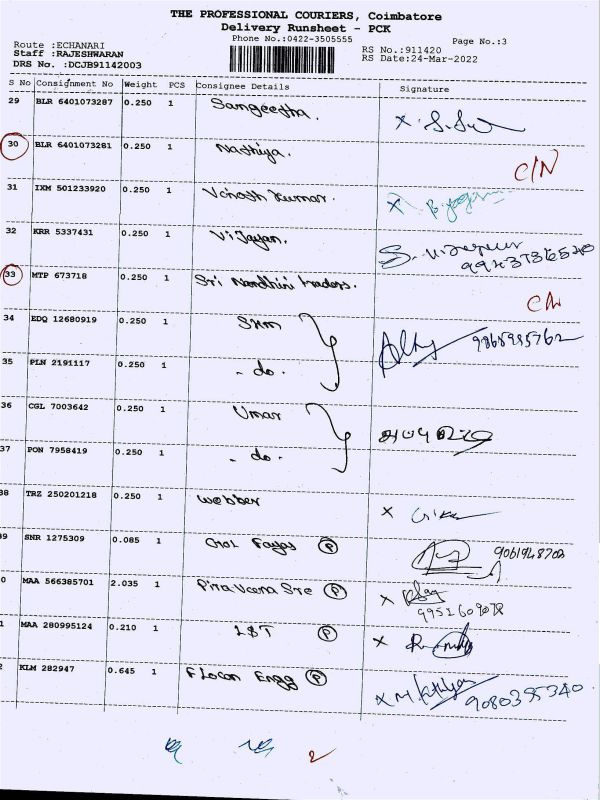 THE PROFESSIONAL COURIERS, Coimbatore
Delivery Runsheet - PCK
Phone No.:0422-3505555
Page No.:3
Route :ECHANARI
Staff :RAJESHWARAN
DRS No. :DCJB91142003
RS No.:911420
RS Date:24-Mar-2022
S No Consignment No Weight PCS Consignee Details Signature
29 BLR 6401073287 0.250 1 Sangeetha.
30 BLR 6401073281 0.250 1 Nathiya. C/N
31 IXM 501233920 0.250 1 Vinoth Kumar.
32 KRR 5337431 0.250 1 Vijayan.
33 MTP 673718 0.250 1 Sri Nandhini traders.
34 EDQ 12680919 0.250 1 9865995762
35 PLN 2191117 0.250 1 - do.
36 CGL 7003642 0.250 1 Umar
37 PON 7958419 0.250 1 - do.
38 TRZ 250201218 0.250 1 Webber
9 SNR 1275309 0.085 1 P
0 MAA 566385701 2.035 1 P
9951609078
1 MAA 280995124 0.210 1 L&T P
2 KLM 282947 0.645 1 Flocon Engg P 9080395340